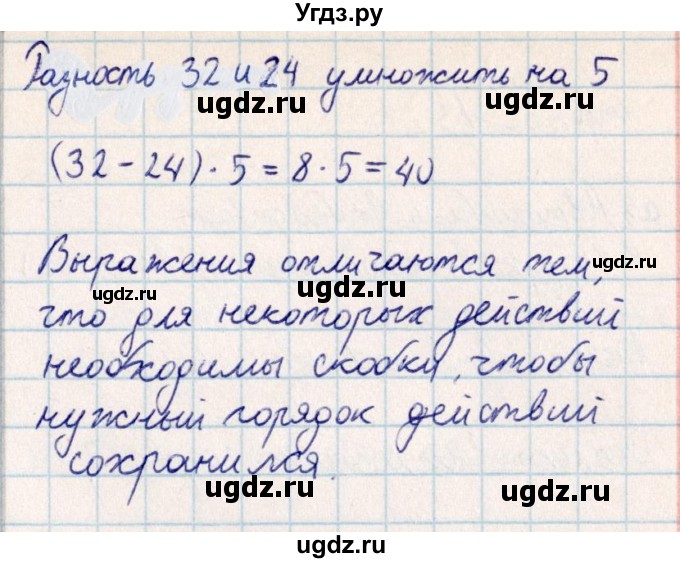 Угдз.ру
Разность 32 и 24 умножить на 5
ugdz.ru ugdz.ru
(32 - 24) · 5 = 8 · 5 = 40
ugdz.ru
Выражения отличаются тем,
ugdz.ru ugdz.ru ugdz.ru
что для некоторых действий
необходимы скобки, чтобы
ugdz.ru
нужный порядок действий
сохранился.
ugdz.ru ugdz.ru
ugdz.ru